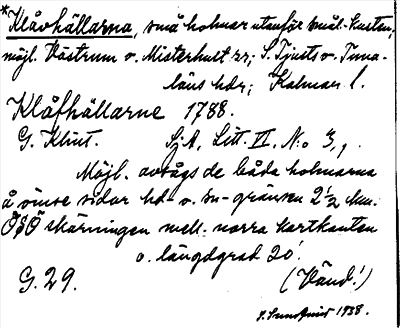 *Klåvhällarna, små holmar utanför Smål.-kusten,
möjl. Västrum o. Misterhult snr; S. Tjusts o. Tuna-
läns hdr; Kalmar l.
Klåfhällarne 1788.
G. Klint. Sj.A. Litt. VI. N:o 3,,
Möjl. avsågs de båda holmarna
å ömse sidor hd- o. sn-gränsen 2 1/2 km.
ÖSÖ skärningen mell. norra kartkanten
o. längdgrad 20'.
G. 29. (Vänd!)
S. Sundqvist 1938.